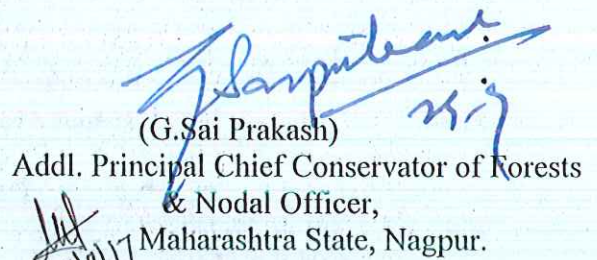 (G.Sai Prakash)
Addl. Principal Chief Conservator of Forests
& Nodal Officer,
Maharashtra State, Nagpur.